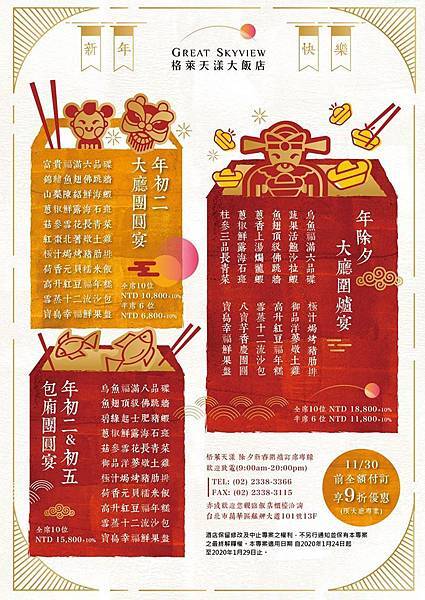 新年
快樂
GREAT SKYVIEW
格萊天漾大飯店
年初二
大廳團圓宴
富貴福滿六品碟
錦繡魚翅佛跳牆
山藥陳紹鮮海蝦
蔥椒鮮露海石斑
菇參雲花長青菜
紅棗北蓍燉土雞
極汁焗烤豬肋排
荷香元貝糯米飯
高升紅豆福年糕
雲蒸十二流沙包
寶島幸福鮮果盤
全席10位
NTD 10,800+10%
半席 6位
NTD 6,800+10%
年除夕
大廳圍爐宴
烏魚福滿六品碟
蔬果活鮑沙拉蝦
魚翅頂級佛跳牆
蔥香上湯焗龍蝦
蔥椒鮮露海石斑
柱參三品長青菜
極汁焗烤豬肋排
御品洋蔘燉土雞
高升紅豆福年糕
雲蒸十二流沙包
八寶芋香慶團圓
寶島幸福鮮果盤
全席10位 NTD 18,800+10%
半席 6位 NTD 11,800+10%
年初二&初五
包廂團圓宴
烏魚福滿八品碟
魚翅頂級佛跳牆
碧綠起士肥海蝦
蔥椒鮮露海石斑
菇參雲花長青菜
御品洋蔘燉土雞
極汁焗烤豬肋排
荷香元貝糯米飯
高升紅豆福年糕
雲蒸十二流沙包
寶島幸福鮮果盤
全席10位
NTD 15,800+10%
格萊天漾 除夕新春圍爐訂席專線
歡迎致電(9:00am-20:00pm)
TEL: (02) 2338-3366
FAX: (02) 2338-3115
亦或歡迎您親臨飯店櫃檯洽詢
台北市萬華區艋舺大道101號13F
11/30
前全額付訂
享9折優惠
(預大廳專案)
酒店保留修改及中止專案之權利，不另行通知並保有本專案
之最終解釋權。本專案適用日期 自2020年1月24日起
至2020年1月29日止。